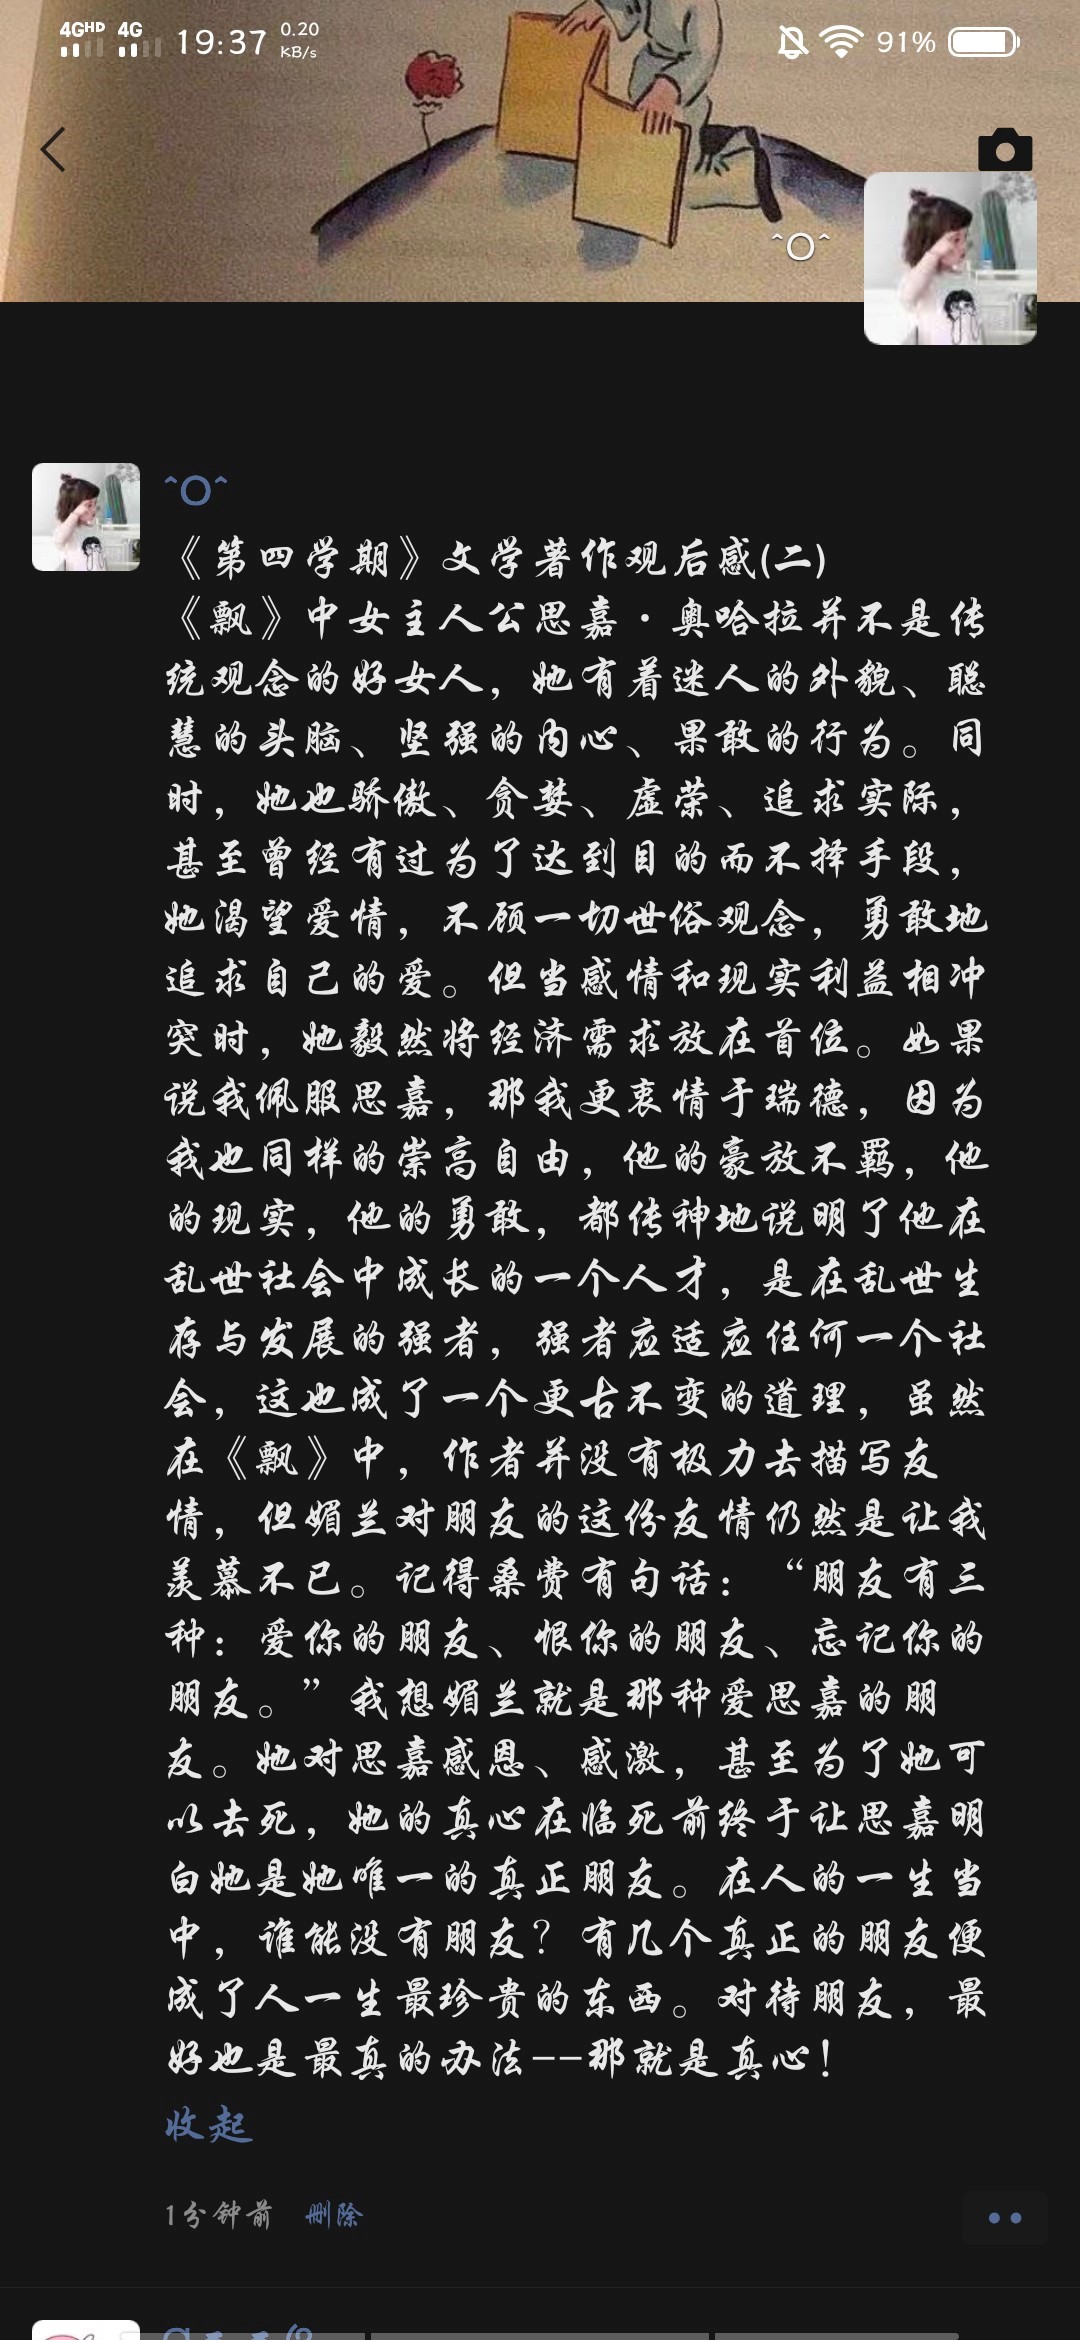 4GHD 4G 19:37 0.20 KB/s 91%
^O^
^O^
《第四学期》文学著作观后感(二)
《飘》中女主人公思嘉·奥哈拉并不是传
统观念的好女人，她有着迷人的外貌、聪
慧的头脑、坚强的内心、果敢的行为。同
时，她也骄傲、贪婪、虚荣、追求实际，
甚至曾经有过为了达到目的而不择手段，
她渴望爱情，不顾一切世俗观念，勇敢地
追求自己的爱。但当感情和现实利益相冲
突时，她毅然将经济需求放在首位。如果
说我佩服思嘉，那我更衷情于瑞德，因为
我也同样的崇高自由，他的豪放不羁，他
的现实，他的勇敢，都传神地说明了他在
乱世社会中成长的一个人才，是在乱世生
存与发展的强者，强者应适应任何一个社
会，这也成了一个更古不变的道理，虽然
在《飘》中，作者并没有极力去描写友
情，但媚兰对朋友的这份友情仍然是让我
羡慕不已。记得桑费有句话：“朋友有三
种：爱你的朋友、恨你的朋友、忘记你的
朋友。”我想媚兰就是那种爱思嘉的朋
友。她对思嘉感恩、感激，甚至为了她可
以去死，她的真心在临死前终于让思嘉明
白她是她唯一的真正朋友。在人的一生当
中，谁能没有朋友？有几个真正的朋友便
成了人一生最珍贵的东西。对待朋友，最
好也是最真的办法--那就是真心！
收起
1分钟前 删除